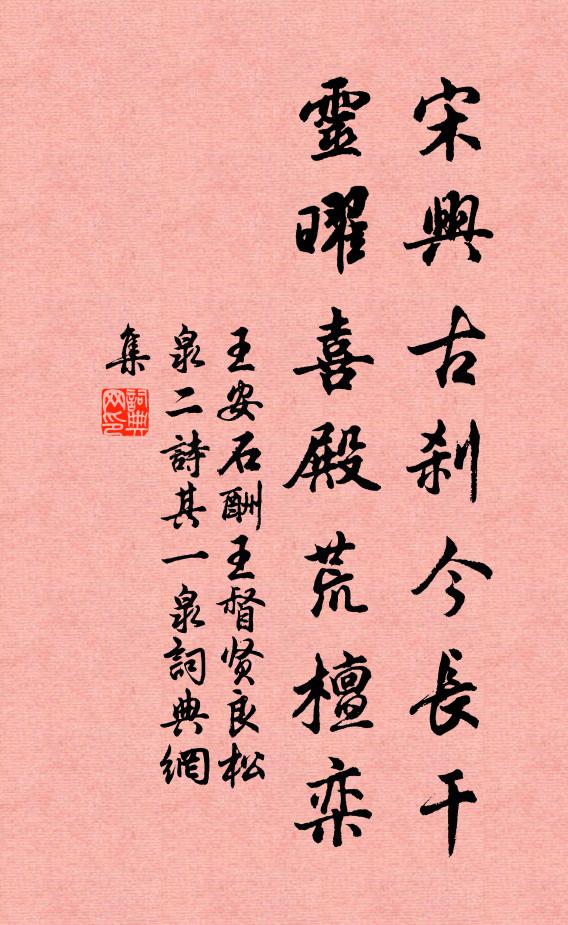 宋興古刹今長干
靈曜喜殿荒檀栾
王安石酬王督贤良松
泉二詩其一泉詞典網
集
詞典
网印